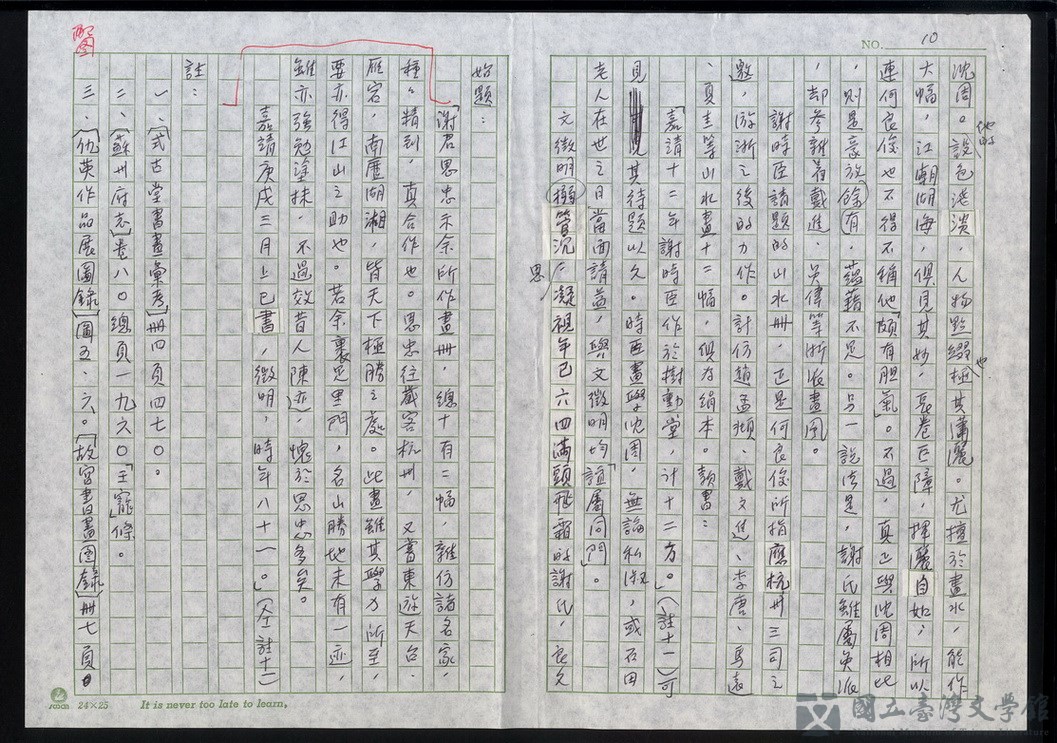 NO. 10
沈周。他的設色淺淡,人物點綴也極其瀟灑。尤擅於畫水,能作
大幅,江湖湖海,俱見其妙,長卷巨障,揮灑自如,所以
連何良俊也不得不稱他「頗有胆氣」。不過,真正與沈周相比
,則是豪放有餘,蘊藉不足。另一說法是,謝氏雖屬吳派
,却參新着戴進、吳偉等浙派畫風。
謝時臣請題的山水冊,正是何良俊所指應杭州三司之
邀,游浙之後的力作。計仿趙孟頫、戴文進、李唐、馬遠
、夏圭等山水畫十二幅,俱為絹本。款書:
「嘉靖十二年謝時臣作於樹動堂,計十二方。」(註十一)可
見其待題以久。時臣畫學沈周,無論私淑,或石田
老人在世之日當面請益,與文徵明均「誼屬同門」。
文徵明搦管沉思,凝視年已六四滿頭飛霜的謝氏,良久
始題:
「謝君思忠示余所作畫冊,總十有二幅,雜仿諸名家,
種種精到,真合作也。思忠往歲客杭州,又嘗東遊天台、
雁宕,南歷湖湘,皆天下極勝之處。此畫雖其學力所至,
要亦得江山之助也。若余裹足里門,名山勝地未有一迹,
雖亦強勉塗抹,不過效昔人陳迹,愧於思忠多矣。
嘉靖庚戌三月上巳書,徵明,時年八十一。」(仝註十一)
註:
一、「式古堂書畫彙考」冊四頁四七〇。
二、「蘇州府志」卷八〇總頁一九六〇「王寵」條。
三、「仇英作品展圖錄」圖五、六。「故宮書畫圖錄」冊七頁
24×25 It is never too late to learn.
國立臺灣文學館